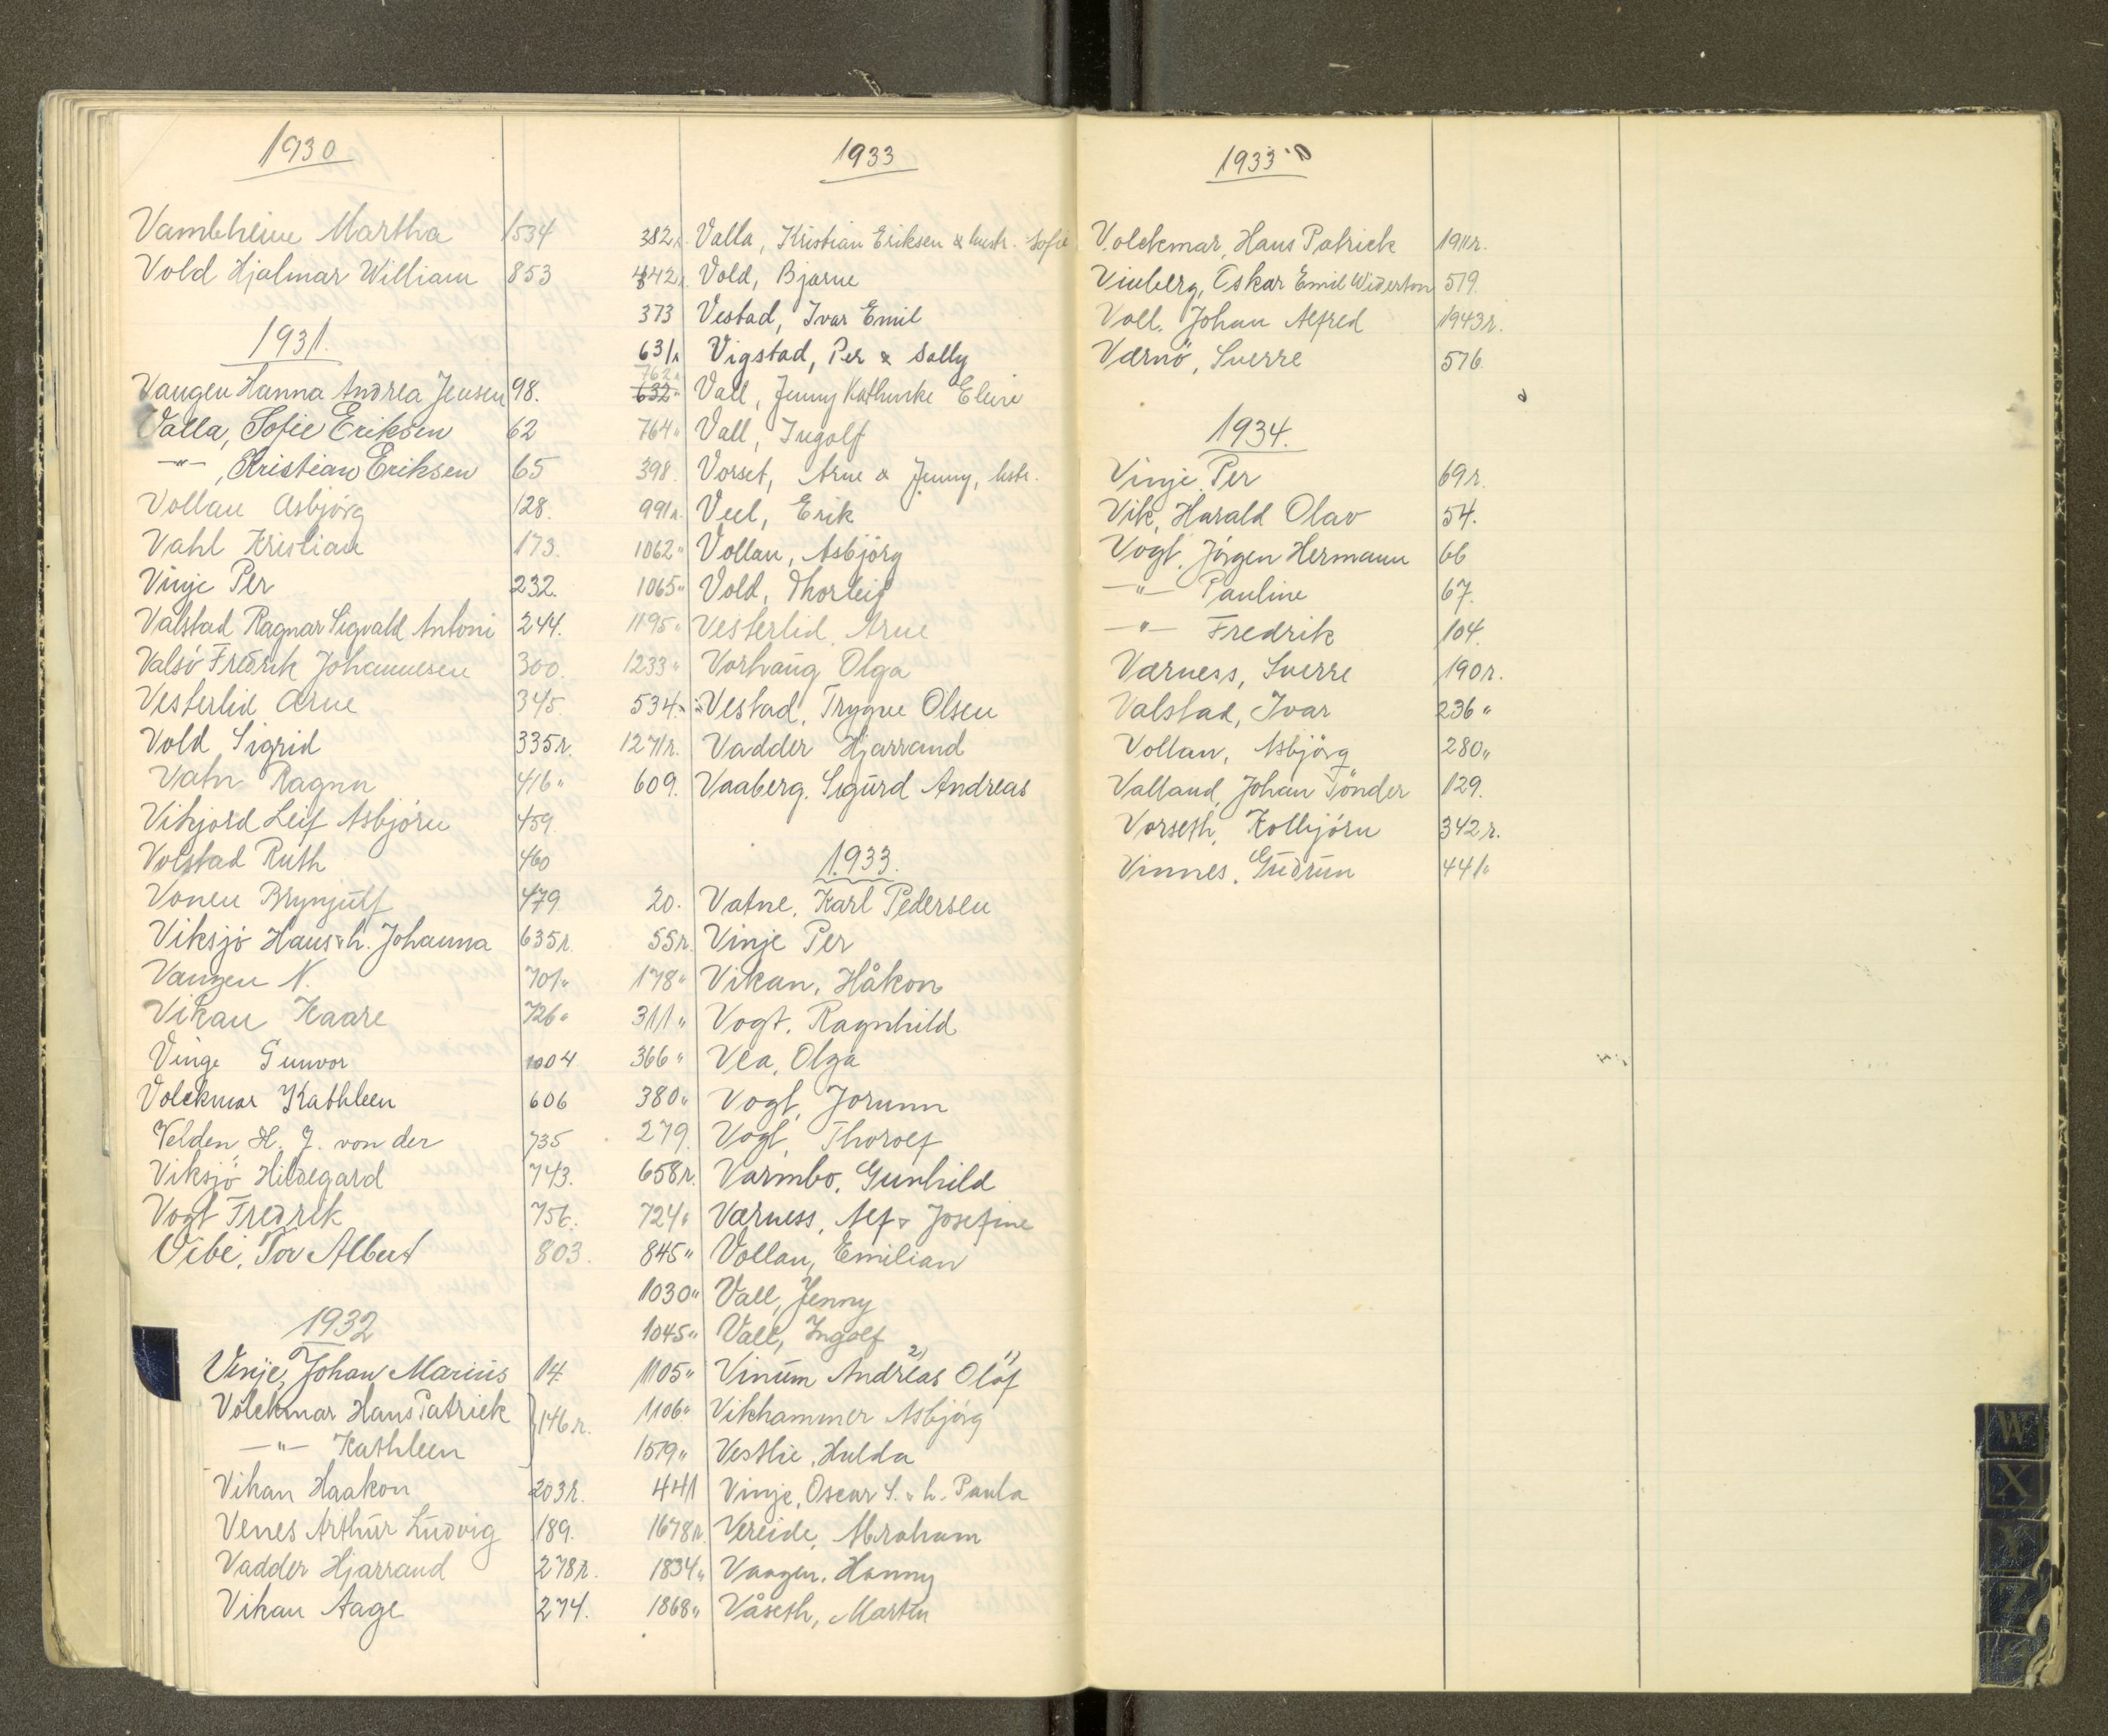 1930
Vambheim Martha 1534
Vold Hjalmar William 853
1931.
Vangen Hanna Andrea Jensen 98.
Valla, Sofie Eriksen 62
—"—, Kristian Eriksen 65
Vollan Asbjörg 128.
Vahl Kristian 173.
Vinje Per 232.
Valstad Ragnar Sigvald Antoni 244.
Valsö Fredrik Johannesen 300.
Vesterlid Arne 345.
Vold Sigrid 335r.
Vatn Ragna 416 "
Vikjord Leif Asbjörn 459
Volstad Ruth 460
Vonen Brynjulf 479
Viksjö Hans & h. Johanna 635r.
Vangen N. 701 "
Vikan Kaare 726 "
Vinge Gunvor 1004
Volckmar Kathleen 606
Velden, H. J. von der 735
Viksjö Hildegard 743.
Vogt Fredrik 756.
Vibe, Tor Albert 803.
1932
Vinje, Johan Marius 14.
Volckmar Hans Patrick } 146 r.
—"— Kathleen
Vikan Haakon 203r.
Venes Arthur Ludvig 189.
Vadder Hjarrand 278r.
Vikan Aage 274.
1933
382r. Valla, Kristian Eriksen & hustr. Sofie
442r. Vold, Bjarne
373 Vestad, Ivar Emil
631r Vigstad, Per & Sally
762r
632" Vall, Jenny Kathinke Eline
764" Vall, Ingolf
398. Vorset, Arne & Jenny, hstr.
991r. Veel, Erik
1062" Vollan, Asbjörg
1065" Vold, Thorleif
1195" Vesterlid Arne
1233" Vorhaug Olga
534. Vestad, Trygve Olsen
1271r. Vadder Hjarrand
609. Vaaberg. Sigurd Andreas
1.933.
20. Vatne, Karl Pedersen
55r. Vinje Per
178" Vikan, Håkon
311" Vogt. Ragnhild
366" Vea, Olga
380" Vogt, Jorunn
279. Vogt, Thorolf
658r. Varmbo, Gunhild
724" Værness, Alf & Josefine
845" Vollan, Emilian
1030" Vall, Jenny
1045" Vall, Ingolf
2) 1)
1105" Vinum Andreas Olaf
1106" Vikhammer Asbjörg
1579" Vestlie, Hulda
441 Vinje, Oscar S. & h. Paula
1678r. Vereide, Abraham
1834" Vaagen. Hanny
1868" Våseth, Martin
1933
Volckmar, Hans Patrick 1911r.
Vinberg, Oskar Emil Widerton 519.
Voll. Johan Alfred 1943r.
Værnö, Sverre 576
1934.
Vinje Per 69r.
Vik, Harald Olav 54.
Vogt. Jörgen Hermann 66
—"— Pauline 67.
—"— Fredrik 104.
Værness, Sverre 190r.
Valstad, Ivar 236 "
Vollan, Asbjörg 280 "
Valland, Johan Tönder 129.
Vorseth, Kolbjörn 342r.
Vinnes. Gudrun 441 "
W
X
Y
Z